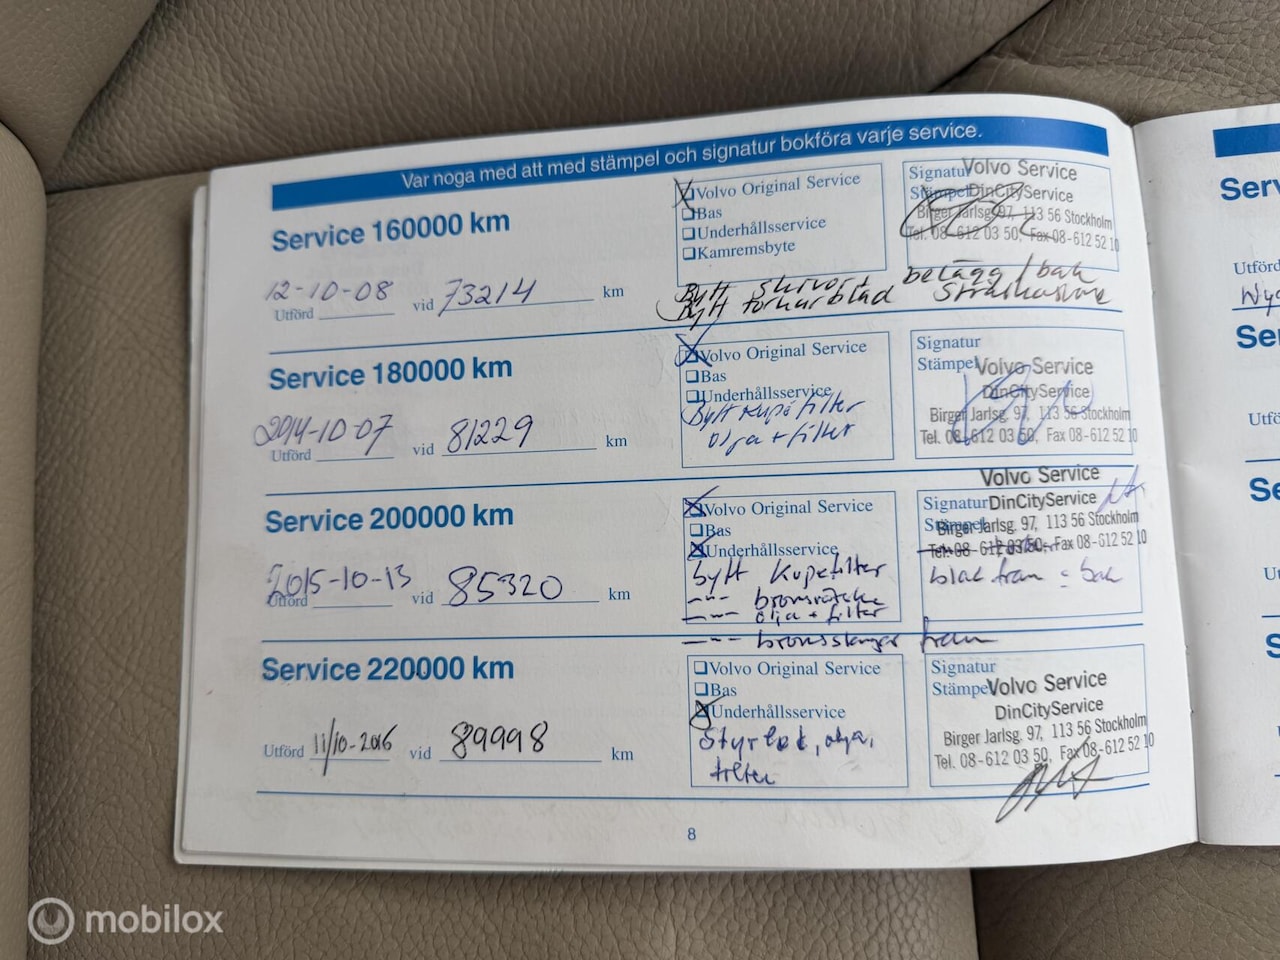 Var noga med att med stämpel och signatur bokföra varje service.
Service 160000 km
12-10-08
Utförd vid 73214 km
Volvo Original Service
Bas
Underhållsservice
Kamremsbyte
Signatur
Stämpel
Volvo Service
DinCityService
Birger Jarlsg. 97, 113 56 Stockholm
Tel. 08-612 03 50, Fax 08-612 52 10
Bytt skivor + belägg bak
Bytt torkarblad
Service 180000 km
2014-10-07
Utförd vid 81229 km
Volvo Original Service
Bas
Underhållsservice
Bytt kupéfilter
olja + filter
Signatur
Stämpel
Volvo Service
DinCityService
Birger Jarlsg. 97, 113 56 Stockholm
Tel. 08-612 03 50, Fax 08-612 52 10
Service 200000 km
2015-10-13
Utförd vid 85320 km
Volvo Original Service
Bas
Underhållsservice
bytt kupefilter
--- bromsvätska
--- olja + filter
--- bromsslangar fram
Signatur
Stämpel
Volvo Service
DinCityService
Birger Jarlsg. 97, 113 56 Stockholm
Tel. 08-612 03 50, Fax 08-612 52 10
blad fram = bak
Service 220000 km
Utförd 11/10-2016 vid 89998 km
Volvo Original Service
Bas
Underhållsservice
olja,
filter
Signatur
Stämpel
Volvo Service
DinCityService
Birger Jarlsg. 97, 113 56 Stockholm
Tel. 08-612 03 50, Fax 08-612 52 10
8
Utförd
mobilox